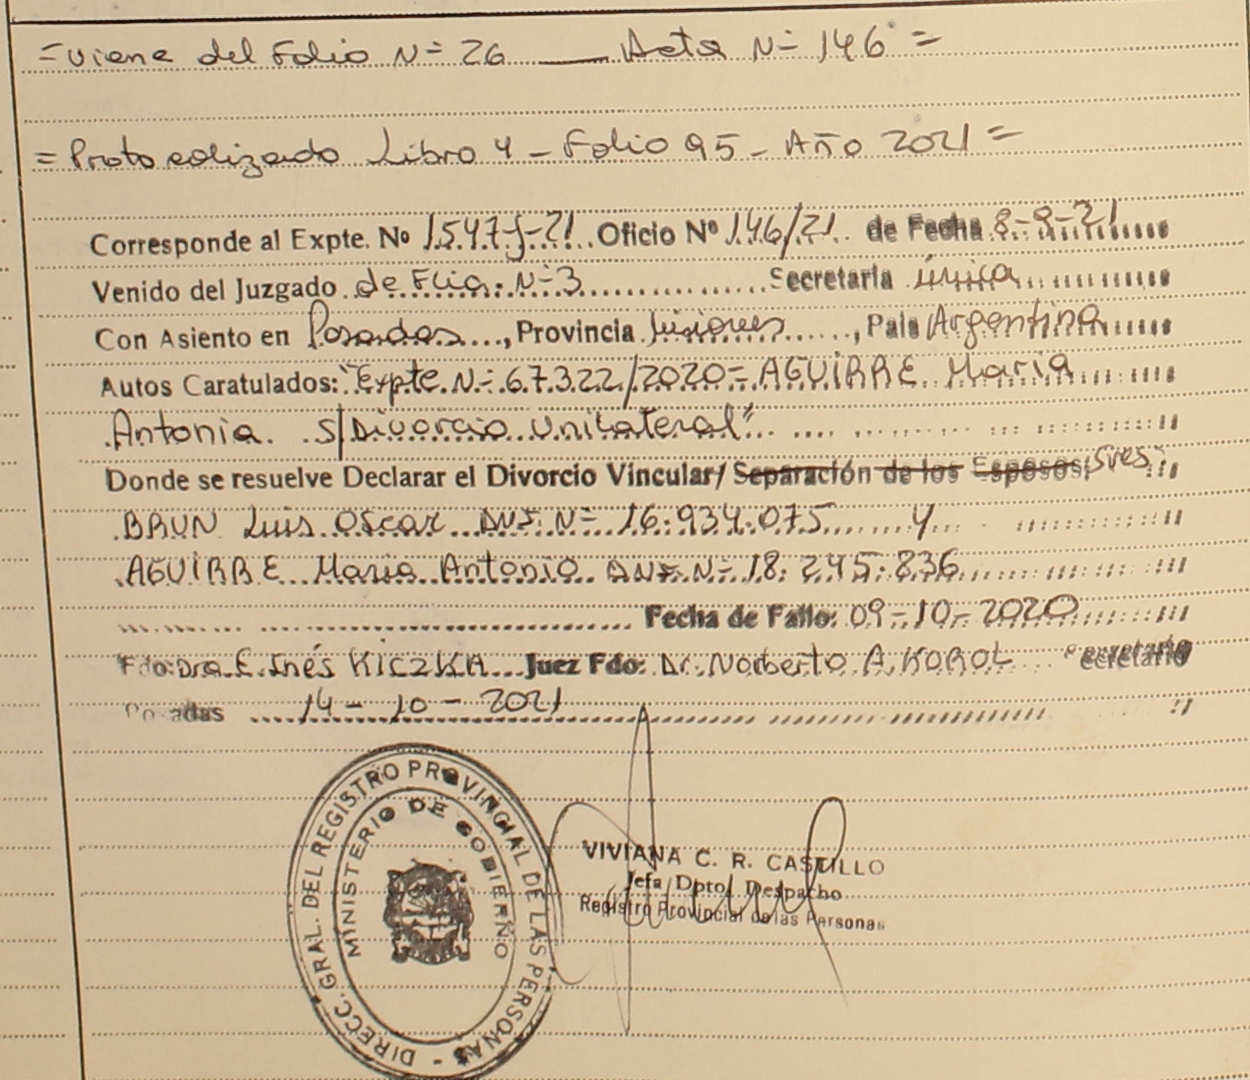 =Viene del Folio N= 26 ___ Acta N= 146 =
= Protocolizado Libro 4 - Folio 95 - Año 2021 =
Corresponde al Expte. Nº 1547-J-21 Oficio Nº 146/21 de Fecha 8-9-21
Venido del Juzgado de Flia. N=3 Secretaria única
Con Asiento en Posadas, Provincia Misiones, País Argentina
Autos Caratulados: "Expte. N= 67322/2020= AGUIRRE Maria
Antonia s/Divorcio Unilateral"
Donde se resuelve Declarar el Divorcio Vincular/ Separación de los Esposos; Sres.
BRUN Luis Oscar DNI. N= 16.934.075 y
AGUIRRE Maria Antonia DNI. N= 18.245.836
Fecha de Fallo: 09-10-2020
Fdo: Dra. E. Inés KICZKA Juez Fdo: Dr. Norberto A. KOROL Secretario
Posadas 14-10-2021
DIRECC. GRAL. DEL REGISTRO PROVINCIAL DE LAS PERSONAS -
MINISTERIO DE GOBIERNO
VIVIANA C. R. CASTILLO
Jefa Dpto. Despacho
Registro Provincial de las Personas